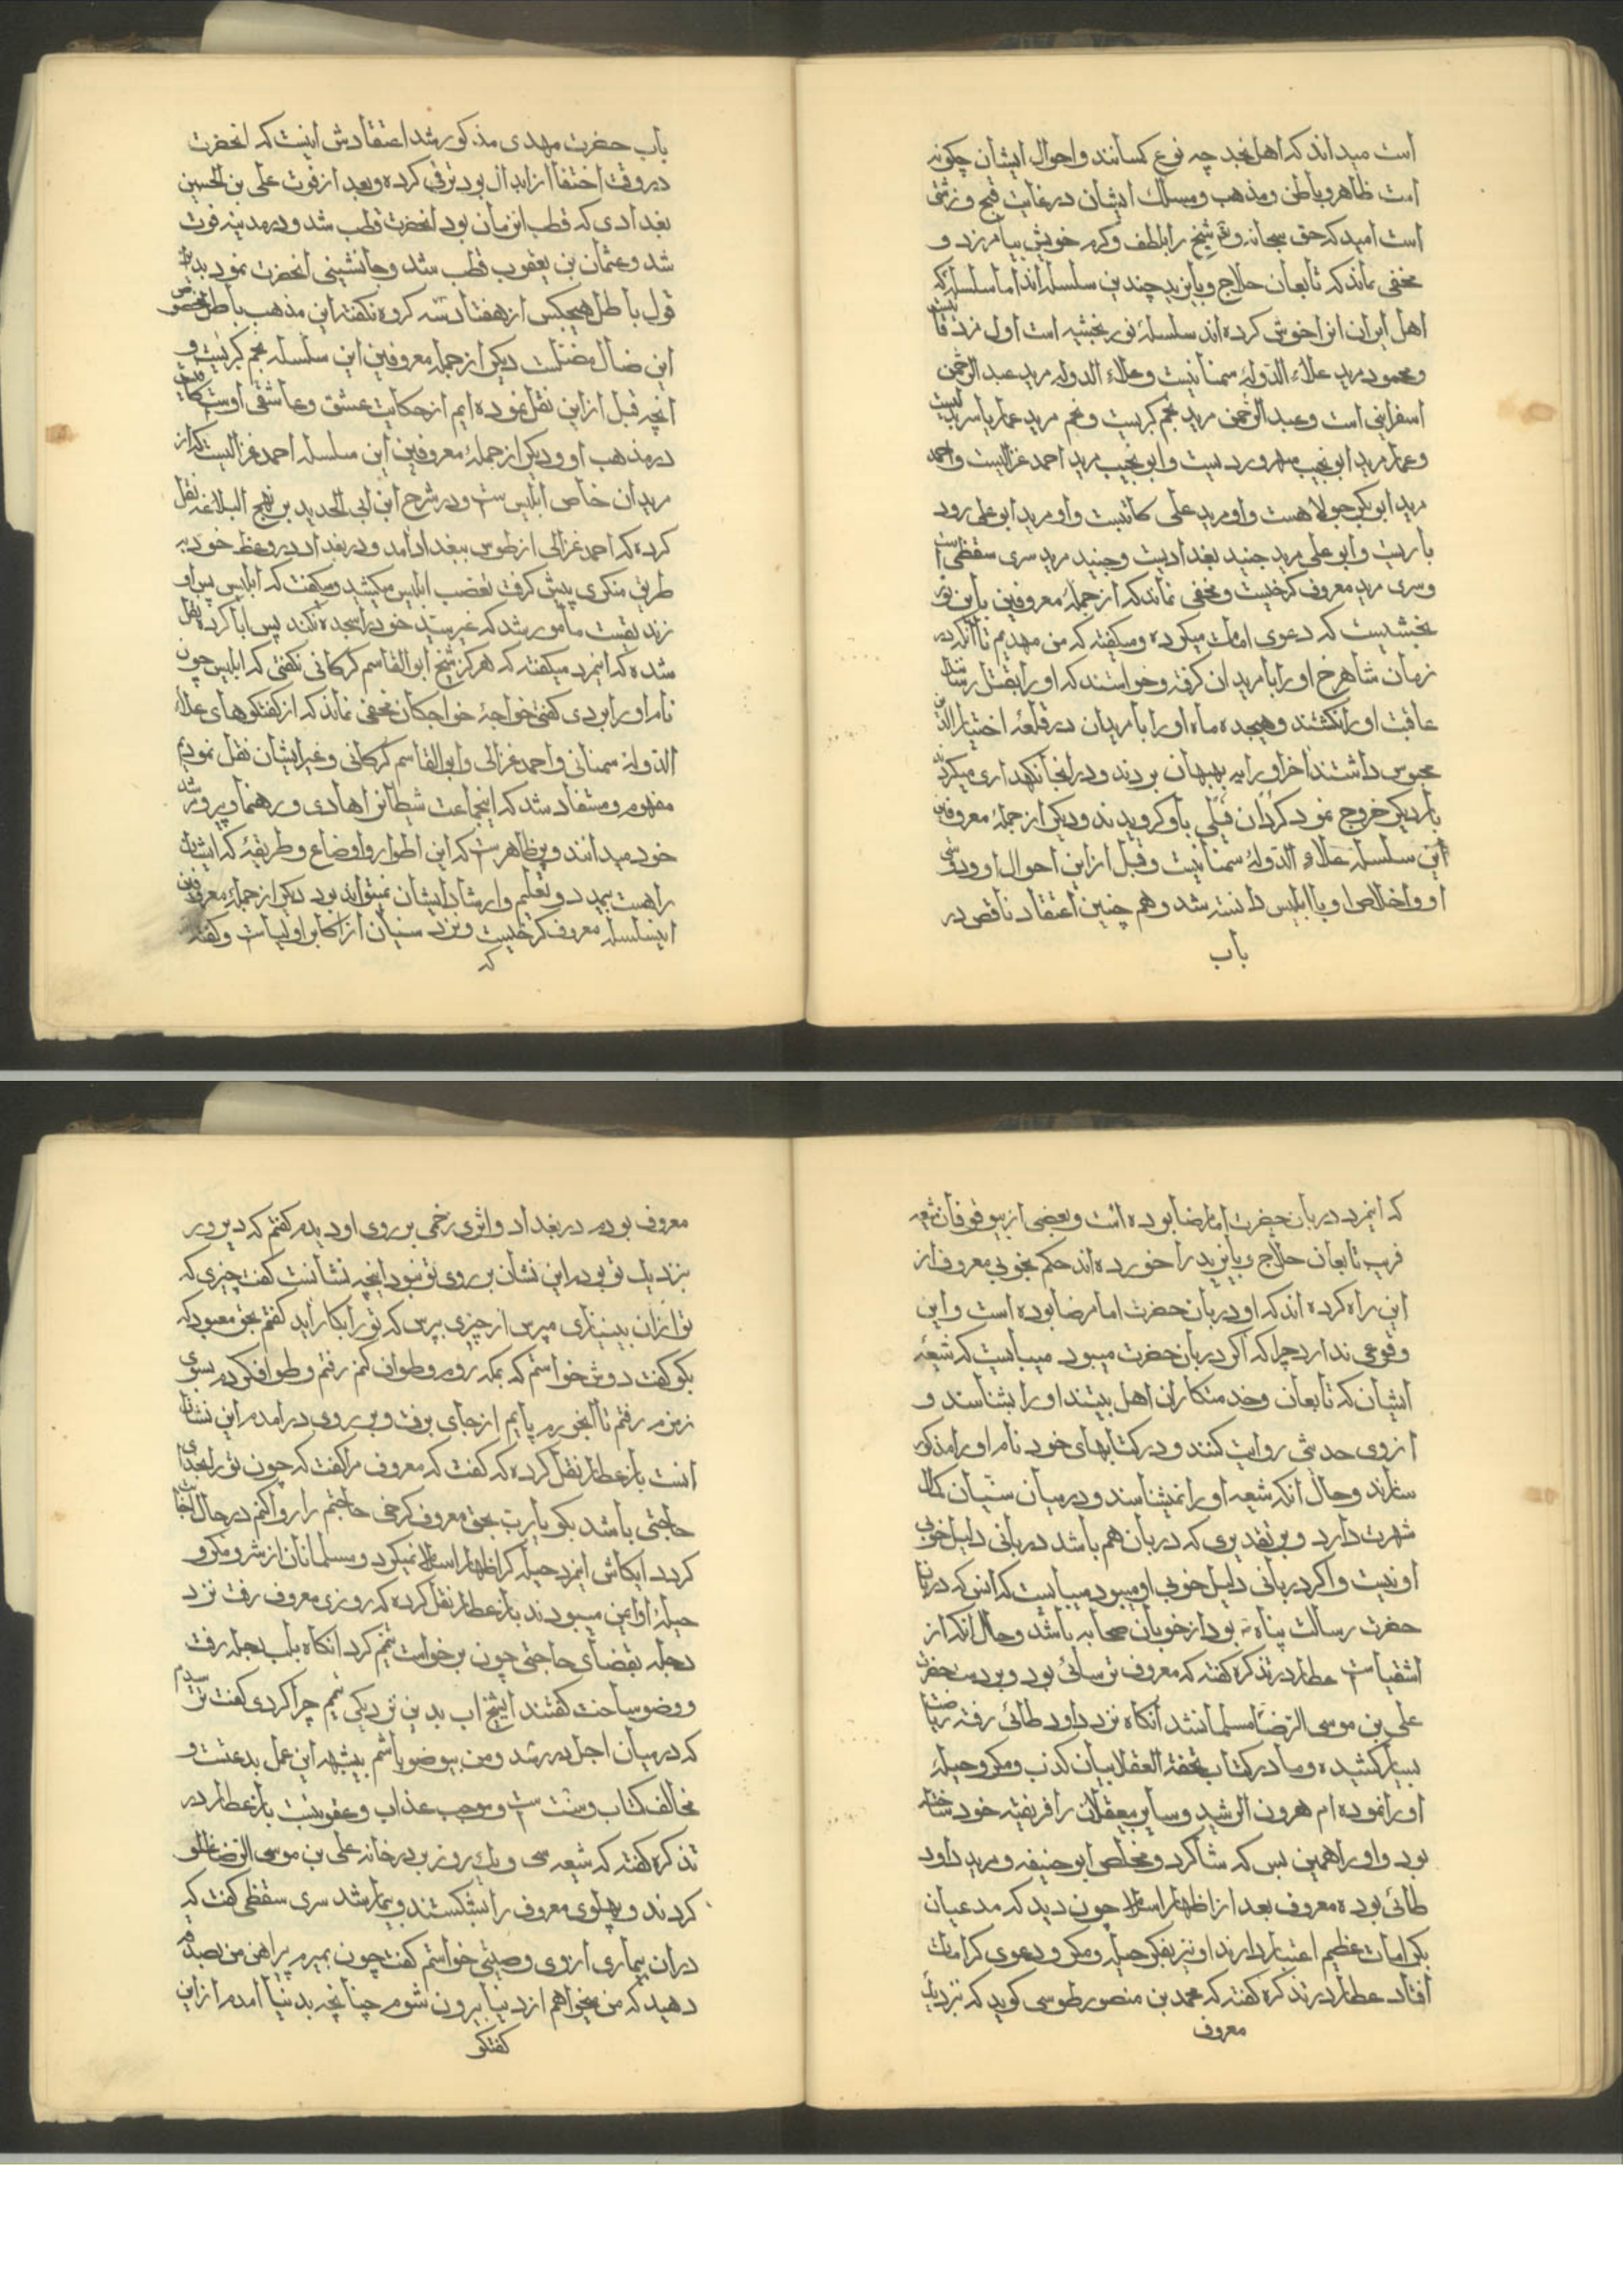 است میداند که اهل نجد چه نوع کسانند و احوال ایشان چکونه
است ظاهر و باطن و مذهب و مسلک ایشان در غایت قبح و زشتی
است امید که حق سبحانه و تع شیخ را بلطف و کرم خویش بیامرزد و
مخفی نماند که تابعان حلاج و بایزید چندین سلسله اند اما سلسله که
اهل ایران انرا خوش کرده اند سلسلهٔ نوربخشیه است اول مزدقانیست
و محمود مرید علاء الدولهٔ سمنانیست و علاء الدوله مرید عبد الرحمن
اسفراینی است و عبد الرحمن مرید نجم کبریست و نجم مرید عمار یاسر
و عمار مرید ابو نجیب سهروردیست و ابو نجیب مرید احمد غزالیست و احمد
مرید ابو بکر جولاهست و او مرید علی کاتبست و او مرید ابو علی رود
باریست و ابو علی مرید جنید بغدادیست و جنید مرید سری سقطی است
و سری مرید معروف کرخیست و مخفی نماند که از جملهٔ معروفین
بخشیست که دعوی امامت میکرده و میکفته که من مهدیم تا انکه در
زمان شاهرخ او را با مریدان کرفته و خواستند که او را بقتل رسانند
عاقبت او را نکشتند و هیجده ماه او را با مریدان در قلعهٔ اختیار الدین
محبوس داشتند اخر او را به بهبهان بردند و در انجا نکهداری میکردند
بار دیکر خروج نمود کردان فیلی باو کرویدند و دیکر از جملهٔ معروفین
این سلسله علاء الدولهٔ سمنانیست و قبل از این احوال او و دوستی
او و اخلاص او با ابلیس دانسته شد و هم چنین اعتقاد ناقص در
باب
باب حضرت مهدی مذکور شد اعتقادش اینست که انحضرت
در وقت اختفا از ابدال بود ترقی کرده و بعد از فوت علی بن الحسین
بغدادی که قطب انزمان بود انحضرت قطب شد و در مدینه فوت
شد و عثمان بن یعقوب قطب شد و جانشینی انحضرت نمود بدین
قول باطل هیچکس از هفتاد سه کروه نکفته این مذهب باطل مخصوص
این ضال مضلست دیکر از جملهٔ معروفین این سلسله نجم کبریست و
انچه قبل از این نقل نموده ایم از حکایت عشق و عاشقی او کافیست
در مذهب او و دیکر از جملهٔ معروفین این سلسله احمد غزالیست که از
مریدان خاص ابلیس است و در شرح ابن ابی الحدید بر نهج البلاغه نقل
کرده که احمد غزالی از طوس ببغداد امد و در بغداد در وعظ خود به
طریق منکری پیش کرفت تعصب ابلیس میکشید و میکفت که ابلیس پیر او
زندیقست مامور شد که غیر سید خود را سجده نکند پس ابا کرد نقل
شده که انیمرد میکفته که هرکز شیخ ابو القاسم کرکانی نکفتی که ابلیس چون
نام او را بردی کفتی خواجهٔ خواجکان مخفی نماند که از کفتکوهای علاء
الدولهٔ سمنانی و احمد غزالی و ابو القاسم کرکانی و غیر ایشان نقل نمودیم
مفهوم و مستفاد شد که اینجماعت شیطانرا هادی و رهنما و پیر و مرشد
خود میدانند و پر ظاهرست که این اطوار و اوضاع و طریقهٔ که ایشان
را هست بیمدد و تعلیم و ارشاد ایشان نمیتواند بود دیکر از جملهٔ معروفین
اینسلسله معروف کرخیست و نزد سنیان از اکابر اولیاست و کفته
که
که انیمرد دربان حضرت امام رضا بوده است و بعضی از بیوقوفان شیعه
فریب تابعان حلاج و بایزید را خورده اند حکم بخوبی معروف از
این راه کرده اند که او دربان حضرت امام رضا بوده است و این
وقوعی ندارد چرا که اکر دربان حضرت میبود میبایست که شیعهٔ
ایشان که تابعان و خدمتکاران اهل بیتند او را بشناسند و
از وی حدیثی روایت کنند و در کتابهای خود نام او را مذکور
سازند و حال انکه شیعه او را نمیشناسند و در میان سنیان کمال
شهرت دارد و بر تقدیری که دربان هم باشد دربانی دلیل خوبی
او نیست و اکر دربانی دلیل خوبی او میبود میبایست که انس که دربان
حضرت رسالت پناه بود از خوبان صحابه باشد و حال انکه از
اشقیاست عطار در تذکره کفته که معروف ترسائی بود و بر دست حضرت
علی بن موسی الرضا مسلمان شد آنکاه نزد داود طائی رفته ریاضت
بسیار کشیده و ما در کتاب تحفة العقلا بیان کذب و مکر و حیلهٔ
او را نموده ام هرون الرشید و سایر بیعقلان را فریفتهٔ خود ساخته
بود و او را همین بس که شاکرد و مخلص ابو حنیفه و مرید داود
طائی بوده معروف بعد از اظهار اسلام چون دید که مدعیان
کرامات عظیم اعتبار دارند او نیز بفکر حیله و مکر و دعوی کرامات
افتاد عطار در تذکره کفته که محمد بن منصور طوسی کوید که نزدیک
معروف
معروف بودم در بغداد و اثری زخمی بر روی او دیدم کفتم که دیروز
نزدیک تو بودم این نشان بر روی تو نبود انچه نشانست کفت چیزی که
تو از ان بینیازی مپرس از چیزی بپرس که تو را بکار آید کفتم بحق معبود که
بکو کفت دوش خواستم که بمکه روم و طواف کنم رفتم و طواف کردم بسوی
زمزم رفتم تا اب خورم پایم از جای برفت و بر روی درامدم این نشان
انست باز عطار نقل کرده که کفت که معروف مرا کفت که چون تو را بخدای
حاجتی باشد بکو یا رب بحق معروف کرخی حاجتم را روا کنم در حال
کردد ایکاش انیمرد حیله کر اظهار اسلام نمیکرد و مسلمانان از شر و مکر و
حیلهٔ او ایمن میبودند باز عطار نقل کرده که روزی معروف رفت نزد
دجله بقضای حاجتی چون برخواست تیمم کرد انکاه بلب دجله رفت
و وضو ساخت کفتند ایشیخ اب بدین نزدیکی تیمم چرا کردی کفت ترسیدم
که در میان اجل در رسد و من بیوضو باشم بیشبهه این عمل بدعتست و
مخالف کتاب و سنت است و موجب عذاب و عقوبتست باز عطار در
تذکره کفته که شیعه یک روز بر در خانه علی بن موسی الرضا غلو
کردند و پهلوی معروف را بشکستند و بیمار شد سری سقطی کفت که
در ان بیماری از وی وصیتی خواستم کفت چون بمیرم پیراهن من بصدقه
دهید که من میخواهم از دنیا بیرون شوم چنانچه بدنیا آمدم از این
کفتکو